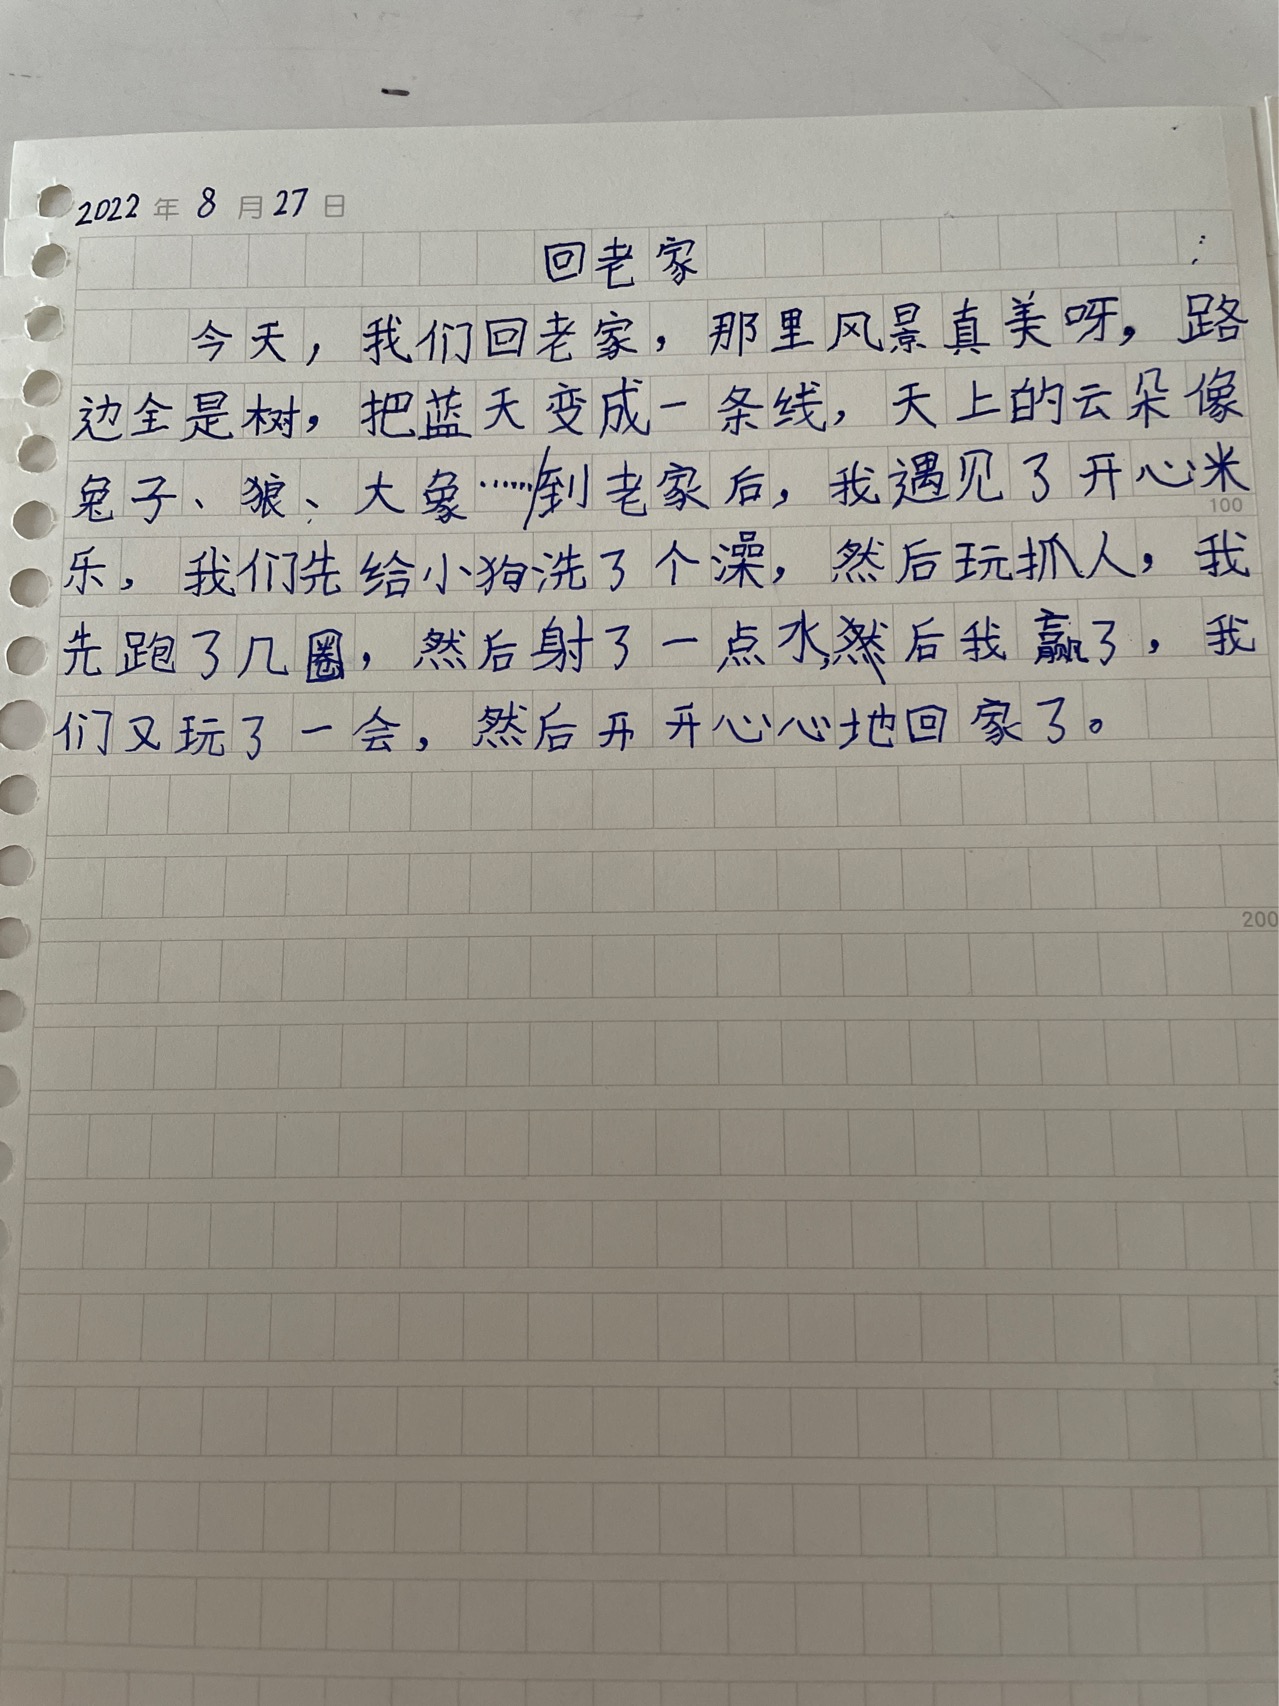 2022年8月27日
回老家
今天，我们回老家，那里风景真美呀，路
边全是树，把蓝天变成一条线，天上的云朵像
兔子、狼、大象……到老家后，我遇见了开心米
100
乐，我们先给小狗洗了个澡，然后玩抓人，我
先跑了几圈，然后射了一点水，然后我赢了，我
们又玩了一会，然后开开心心地回家了。
200